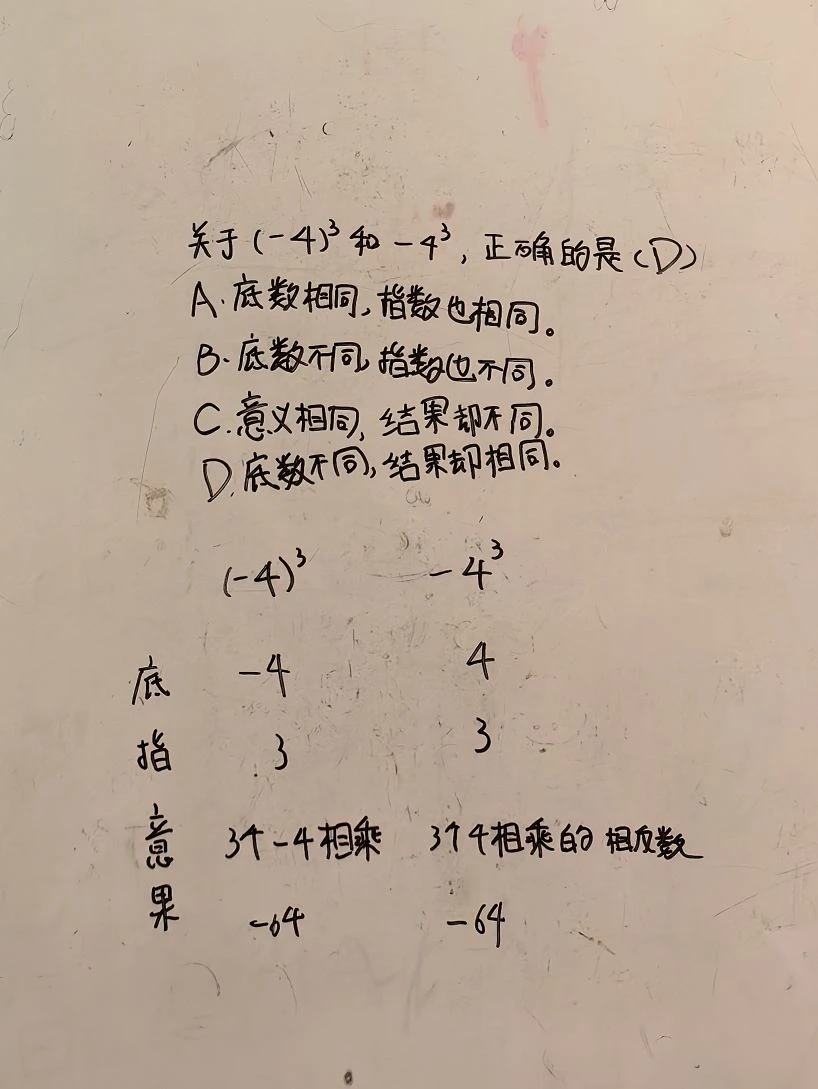 关于(-4)³和-4³,正确的是(D)
A.底数相同,指数也相同。
B.底数不同,指数也不同。
C.意义相同,结果却不同。
D.底数不同,结果却相同。
(-4)³ -4³
底 -4 4
指 3 3
意 3个-4相乘 3个4相乘的相反数
果 -64 -64